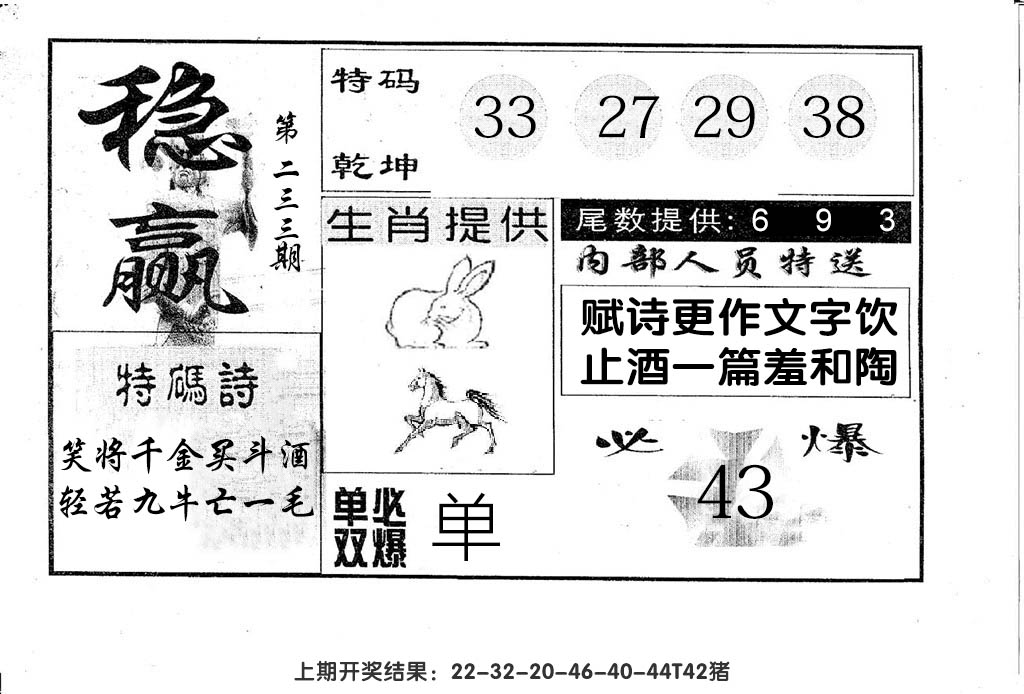 稳赢
第二三三期
特码
乾坤
33 27 29 38
特碼詩
笑将千金买斗酒
轻若九牛亡一毛
生肖提供
单必
双爆
单
尾数提供: 6 9 3
内部人员特送
赋诗更作文字饮
止酒一篇羞和陶
必爆
43
上期开奖结果：22-32-20-46-40-44T42猪